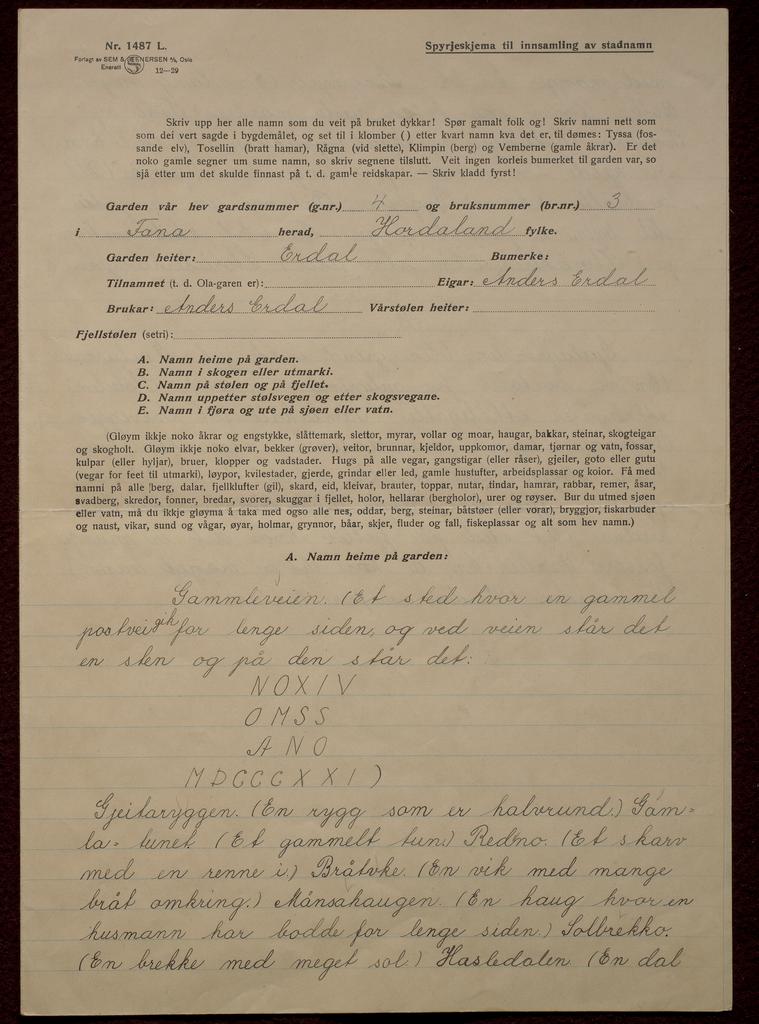 Nr. 1487 L.
Forlagt av SEM & STENERSEN A/S, Oslo
Enerett 12—29
Spyrjeskjema til innsamling av stadnamn
Skriv upp her alle namn som du veit på bruket dykkar! Spør gamalt folk og! Skriv namni nett som
som dei vert sagde i bygdemålet, og set til i klomber ( ) etter kvart namn kva det er, til dømes: Tyssa (fos-
sande elv), Tosellin (bratt hamar), Rågna (vid slette), Klimpin (berg) og Vemberne (gamle åkrar). Er det
noko gamle segner um sume namn, so skriv segnene tilslutt. Veit ingen korleis bumerket til garden var, so
sjå etter um det skulde finnast på t. d. gamle reidskapar. — Skriv kladd fyrst!
Garden vår hev gardsnummer (g.nr.) 4 og bruksnummer (br.nr.) 3
i Fana herad, Hordaland fylke.
Garden heiter: Erdal Bumerke:
Tilnamnet (t. d. Ola-garen er): Eigar: Anders Erdal
Brukar: Anders Erdal Vårstølen heiter:
Fjellstølen (setri):
A. Namn heime på garden.
B. Namn i skogen eller utmarki.
C. Namn på stølen og på fjellet.
D. Namn uppetter stølsvegen og etter skogsvegane.
E. Namn i fjøra og ute på sjøen eller vatn.
(Gløym ikkje noko åkrar og engstykke, slåttemark, slettor, myrar, vollar og moar, haugar, bakkar, steinar, skogteigar
og skogholt. Gløym ikkje noko elvar, bekker (grøver), veitor, brunnar, kjeldor, uppkomor, damar, tjørnar og vatn, fossar,
kulpar (eller hyljar), bruer, klopper og vadstader. Hugs på alle vegar, gangstigar (eller råser), gjeiler, goto eller gutu
(vegar for feet til utmarki), løypor, kvilestader, gjerde, grindar eller led, gamle hustufter, arbeidsplassar og koior. Få med
namni på alle berg, dalar, fjellklufter (gil), skard, eid, kleivar, brauter, toppar, nutar, tindar, hamrar, rabbar, remer, åsar,
svadberg, skredor, fonner, bredar, svorer, skuggar i fjellet, holor, hellarar (bergholor), urer og røyser. Bur du utmed sjøen
eller vatn, må du ikkje gløyma å taka med ogso alle nes, oddar, berg, steinar, båtstøer (eller vorar), bryggjor, fiskarbuder
og naust, vikar, sund og vågar, øyar, holmar, grynnor, båar, skjer, fluder og fall, fiskeplassar og alt som hev namn.)
A. Namn heime på garden:
Gammleveien. (Et sted hvor en gammel
postvei gik for lenge siden, og ved veien står det
en sten og på den står det:
NOXIV
OMSS
ANO
MDCCCXXI)
Gjeitaryggen. (En rygg som er halvrund.) Gam-
la-tunet. (Et gammelt tun.) Redno. (Et skarv
med en renne i.) Bråtvke. (En vik med mange
bråt omkring.) Månsahaugen. (En haug hvor en
husmann har bodde for lenge siden.) Solbrekko.
(En brekke med meget sol.) Hasledalen. (En dal